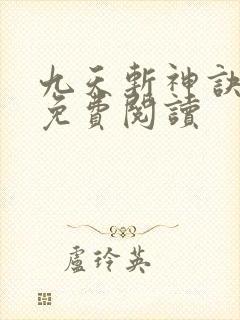 九天斬神訣
免費閱讀
盧玲英